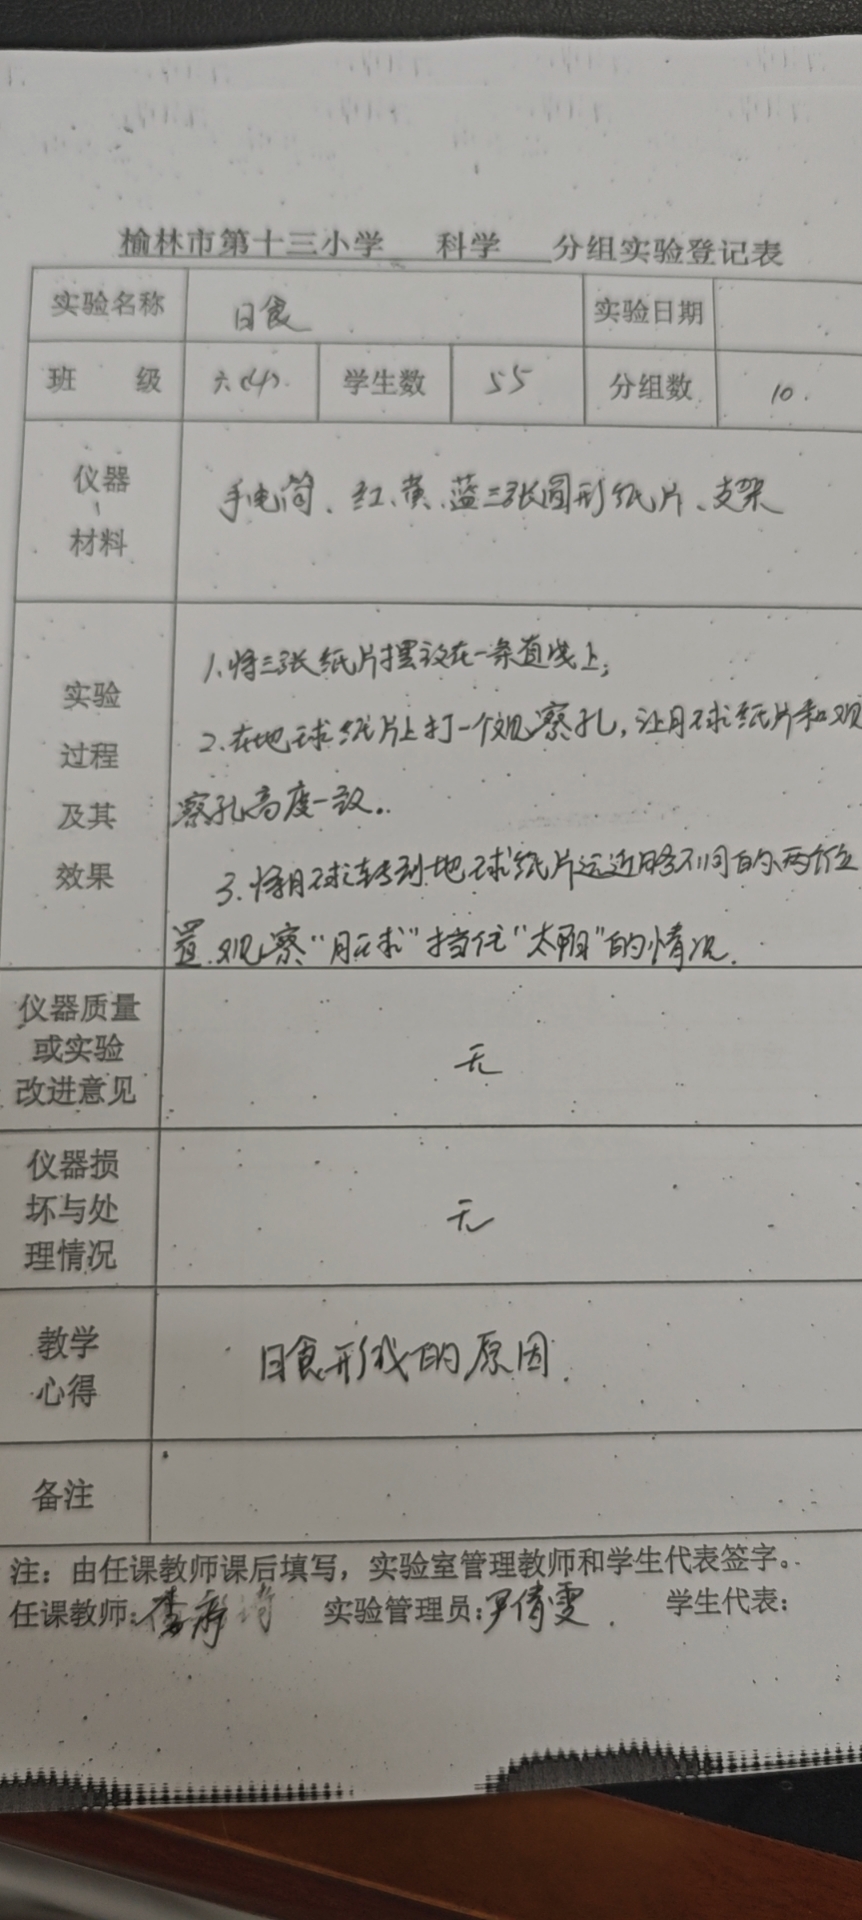 榆林市第十三小学 科学 分组实验登记表
实验名称 日食 实验日期
班 级 六(4). 学生数 55 分组数 10.
仪器、材料 手电筒、红、黄、蓝三张圆形纸片、支架
实验过程及其效果 1.将三张纸片摆设在一条直线上;
2.在地球纸片上打一个观察孔,让月球纸片和观
察孔高度一致。
3.将月球转到地球纸片远近略不同的两个位
置.观察“月球”挡住“太阳”的情况.
仪器质量或实验改进意见 无
仪器损坏与处理情况 无
教学心得 日食形成的原因.
备注
注:由任课教师课后填写,实验室管理教师和学生代表签字。
任课教师:李 实验管理员:尹倩雯. 学生代表: